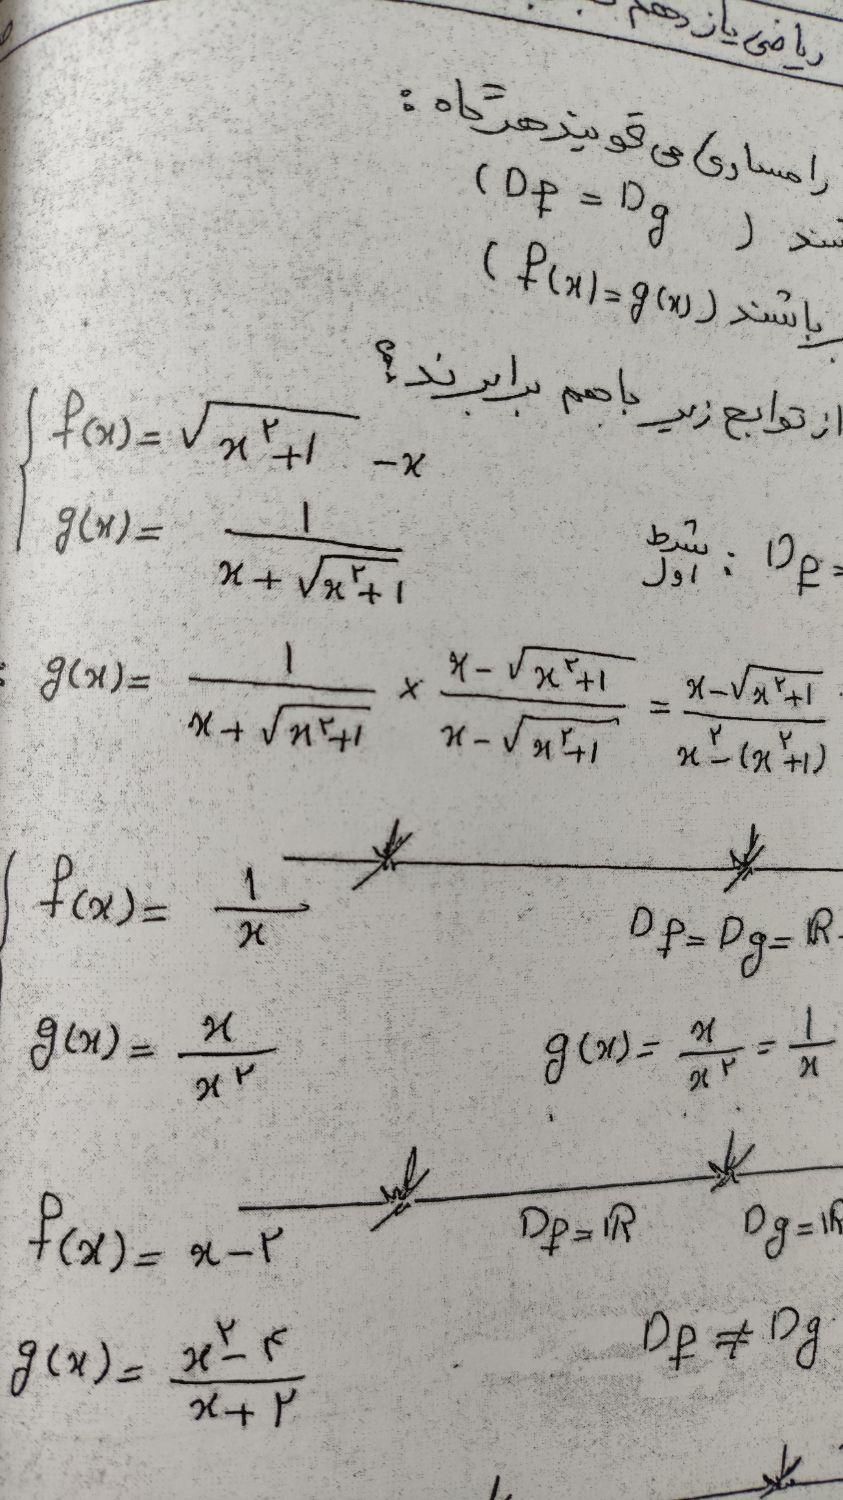 ریاضی یازدهم
را مساوی می گویند هرگاه :
شند ( Df = Dg )
ر باشند ( f(x) = g(x) )
از توابع زیر باهم برابرند ؟
f(x) = √(x²+1) - x
g(x) = 1 / (x + √(x²+1))
شرط اول : Df =
: g(x) = 1 / (x + √(x²+1)) × (x - √(x²+1)) / (x - √(x²+1)) = (x - √(x²+1)) / (x² - (x²+1))
f(x) = 1 / x
Df = Dg = ℝ -
g(x) = x / x²
g(x) = x / x² = 1 / x
f(x) = x - ۲
Df = ℝ Dg = ℝ
g(x) = (x² - ۴) / (x + ۲)
Df ≠ Dg